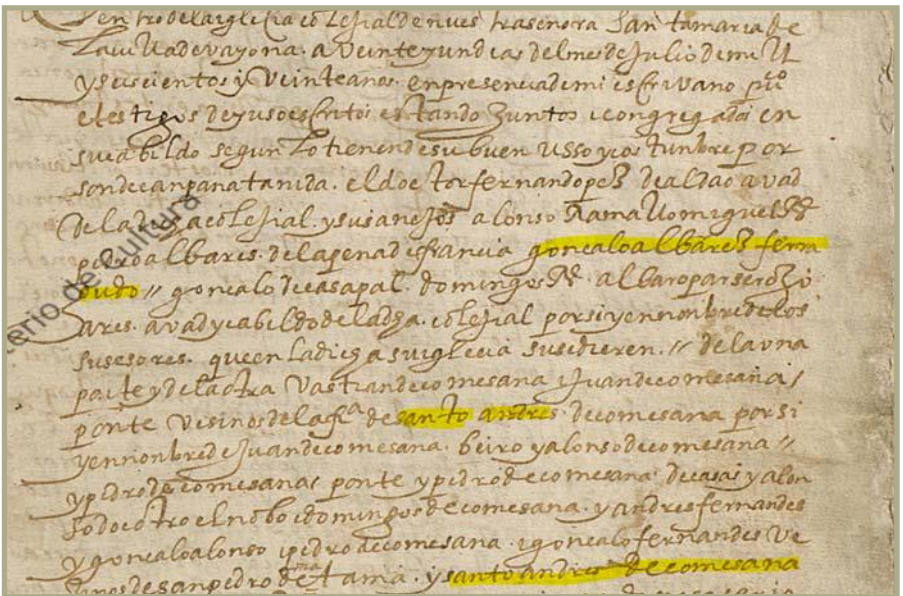 dentro de la iglesia colesial de nuestra senora Santamaria de
la villa de vayona. a veinte y un dias del mes de Julio de mill
y seiscientos y veinte anos. en presencia de mi escrivano puco
e testigos de yuso escritos estando Juntos e congregados en
su cabildo segun lo tienen de su buen usso y costunbre por
son de canpana tanida. el doctor fernando perez de aldao avad
de la colesial. y sus anejos alonso Ramallo miguel Rs
pedro albares. de la pena de francia goncalo albarez ferra
dudo // goncalo de casapal. domingos Rs. albaro par
ares. avad y cabildo de la dha. colesial por si y en nonbre de los
susesores. que en la dicha su iglecia susedieren. // de la una
parte y de la otra Vastian de comesana y Juan de comesana /
ponte vesinos de la fa de santo andres de comesana por si
y en nonbre de Juan de comesana. beiro y alonso de comesana //
y pedro de comesana ponte y pedro de comesana de casas y alon
so do outro el nobo e domingos de comesana. y andres fernandes
y goncalo alonso y pedro de comesana. y goncalo fernandes ve
sinos de san pedro de matama. y santo andres de comesana
erio de cultura